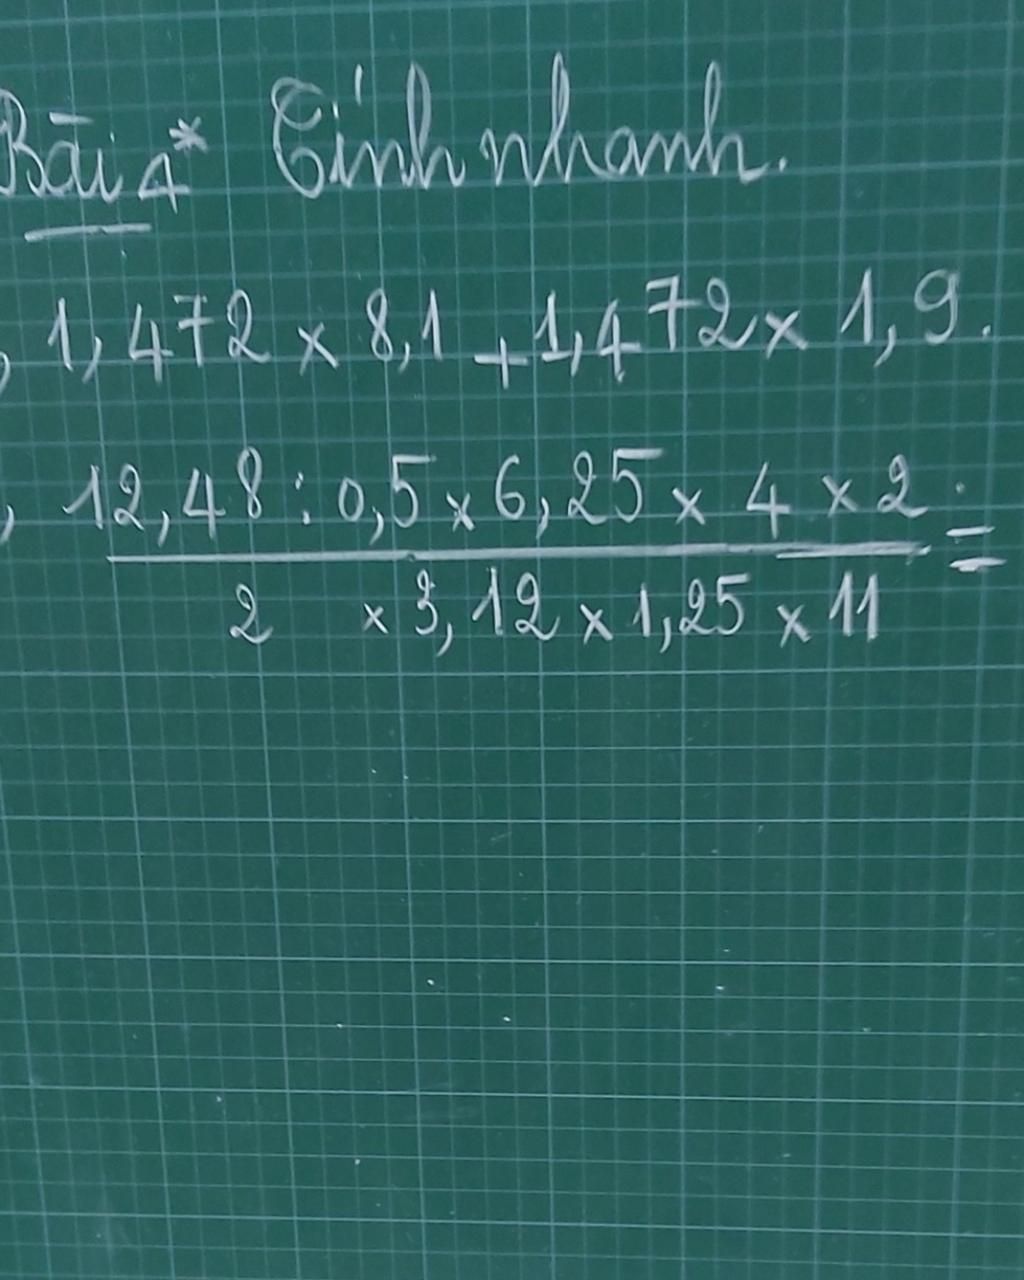 Bài 4* Tính nhanh.
, 1,472 x 8,1 + 1,472 x 1,9.
, 12,48 : 0,5 x 6,25 x 4 x 2 =
2 x 3,12 x 1,25 x 11